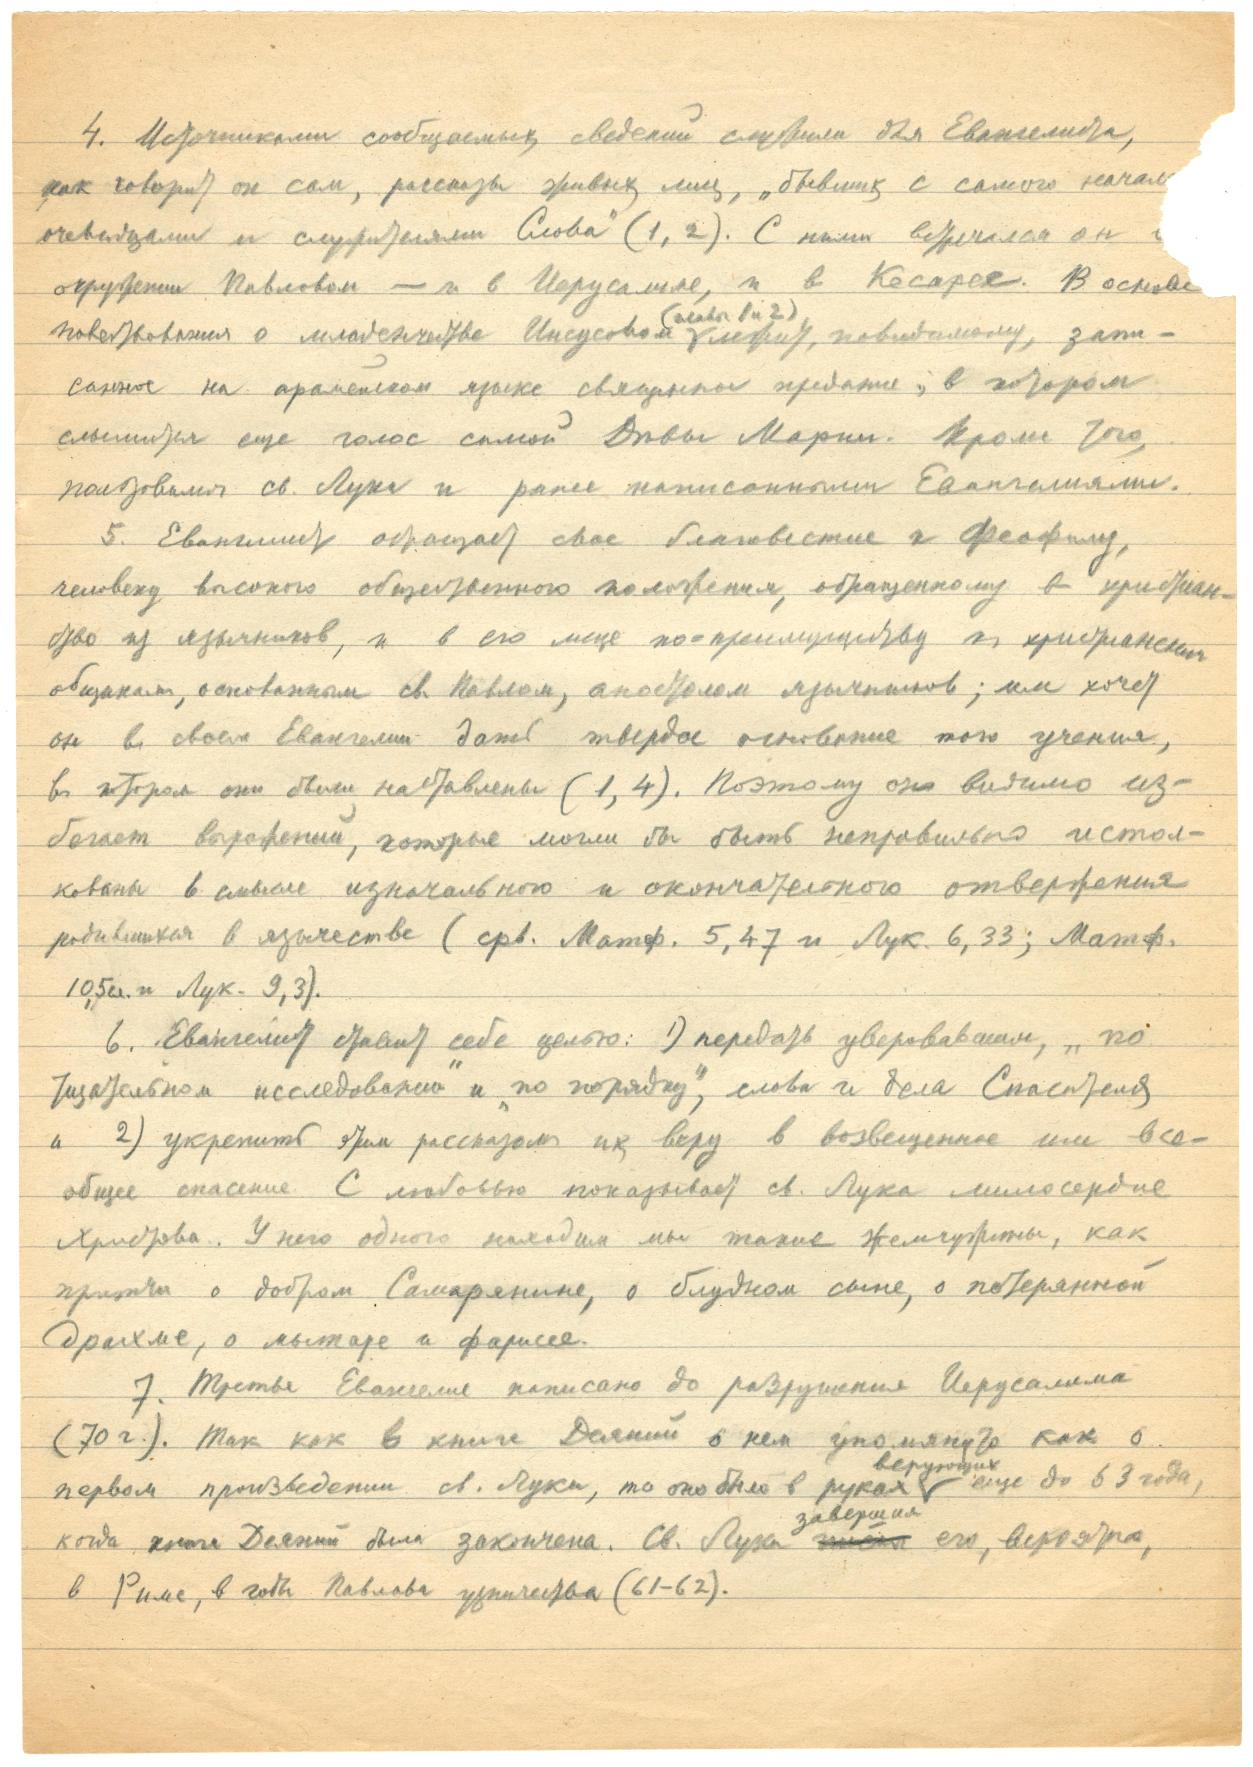 4. Источниками сообщаемых сведений служили для Евангелиста,
как говорит он сам, рассказы живых лиц, „бывших с самого начал
очевидцами и служителями Слова" (1, 2). С ними встречался он
окружении Павловом — и в Иерусалиме, и в Кесарее. В основе
повествования о младенчестве Иисусовом (главы 1 и 2) лежит, повидимому, запи-
санное на арамейском языке священное предание, в котором
слышится еще голос самой Девы Марии. Кроме того,
пользовался св. Лука и ранее написанными Евангелиями.
5. Евангелист обращает свое благовестие к Феофилу,
человеку высокого общественного положения, обращенному в христиан-
ство из язычников, и в его лице по-преимуществу к христианским
общинам, основанным св. Павлом, апостолом язычников; им хочет
он в своем Евангелии дать твердое основание того учения,
в котором они были наставлены (1, 4). Поэтому он видимо из-
бегает выражений, которые могли бы быть неправильно истол-
кованы в смысле изначального и окончательного отвержения
родившихся в язычестве (срв. Матф. 5, 47 и Лук. 6, 33; Матф.
10,5сл. и Лук. 9, 3).
6. Евангелист ставит себе целью: 1) передать уверовавшим, „по
тщательном исследовании" и „по порядку", слова и дела Спасителя
и 2) укрепить этим рассказом их веру в возвещенное им все-
общее спасение. С любовью показывает св. Лука милосердие
Христово. У него одного находим мы такие жемчужины, как
притчи о добром Самарянине, о блудном сыне, о потерянной
драхме, о мытаре и фарисее.
7. Третье Евангелие написано до разрушения Иерусалима
(70 г.). Так как в книге Деяний о нем упомянуто как о
первом произведении св. Луки, то оно было в руках верующих еще до 63 года,
когда книга Деяний была закончена. Св. Лука завершил его, вероятно,
в Риме, в годы Павлова узничества (61-62).